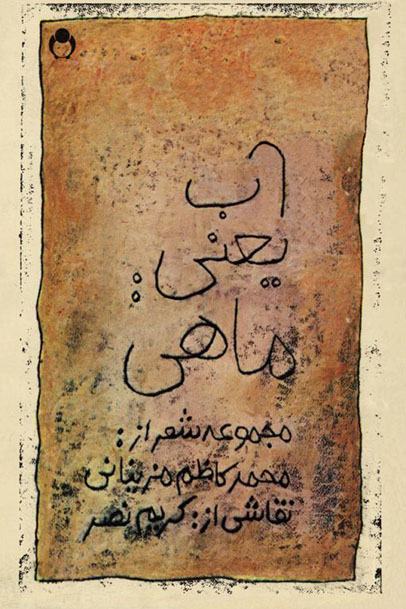 آب
یعنی:
ماهی
مجموعه شعر از:
محمد کاظم مزینانی
نقاشی از: کریم نصر